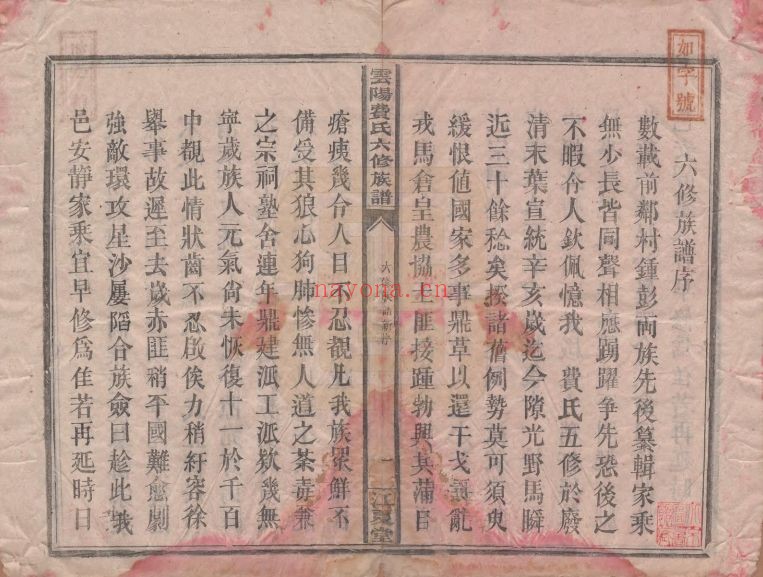 如字號
六修族譜序
數載前鄰村鍾彭兩族先後纂輯家乘
無少長皆同聲相應踴躍爭先恐後之
不暇令人欽佩憶我費氏五修於廢
清末葉宣統辛亥歲迄今隙光野馬瞬
近三十餘稔矣揆諸舊例勢莫可須臾
緩恨值國家多事鼎革以還干戈擾亂
戎馬倉皇農協土匪接踵勃興其蒲目
雲陽費氏六修族譜
六修族譜序
一
江夏堂
瘡痍幾令人目不忍覩凡我族眾鮮不
備受其狼心狗肺慘無人道之荼毒兼
之宗祠塾舍連年鼎建派工派欵幾無
寧歲族人元氣尚未恢復十一於千百
中覩此情狀齒不忍啟俟力稍紓容徐
舉事故遲至去歲赤匪稍平國難愈劇
強敵環攻星沙屢陷合族僉曰趁此我
邑安靜家乘宜早修為佳若再延時日
nayona.cn